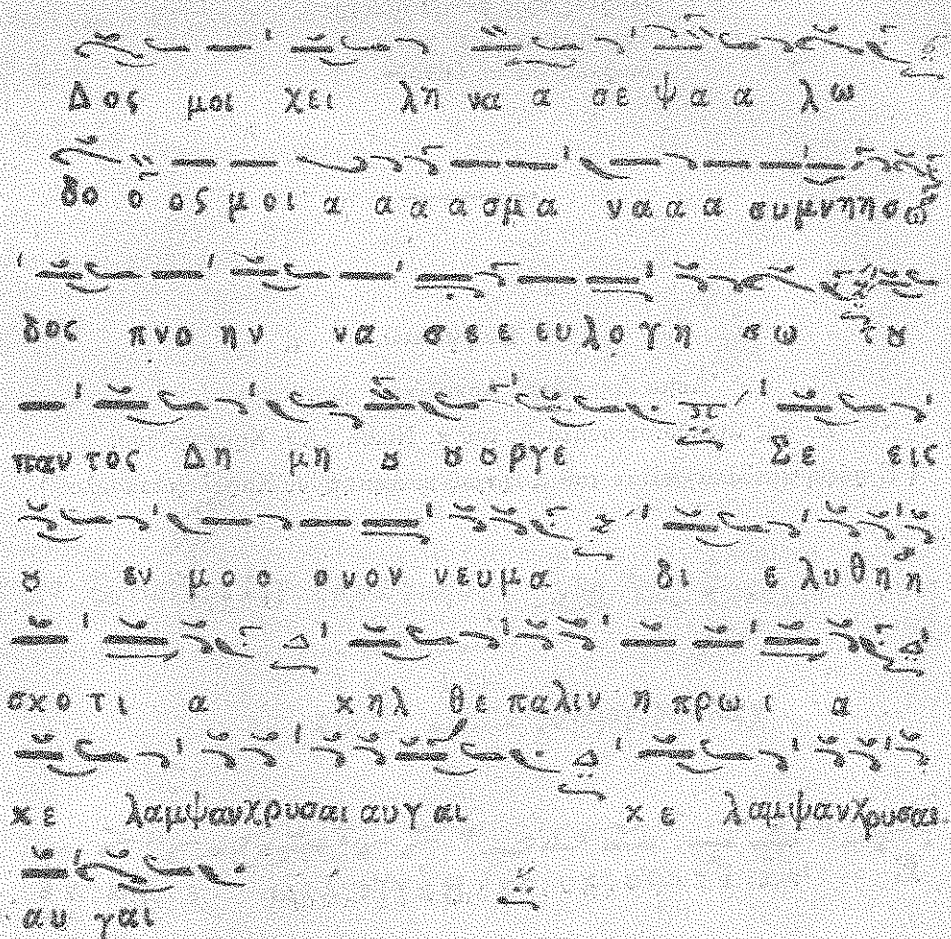 Δος μοι χει λη να α σε ψα α λω
δο ο ος μοι α α α ασμα να α α συμνηησω
δος πνο ην να σε ε ευλογη σω τȣ
παντος Δη μη ȣ ȣ ȣργε Σε εις
ȣ εν μο ο ονον νευμα δι ε λυθη η
σκοτι α κηλ θε παλιν η πρωι α
κ ε λαμψανχρυσαι αυγ αι κ ε λαμψανχρυσαι
αυ γαι